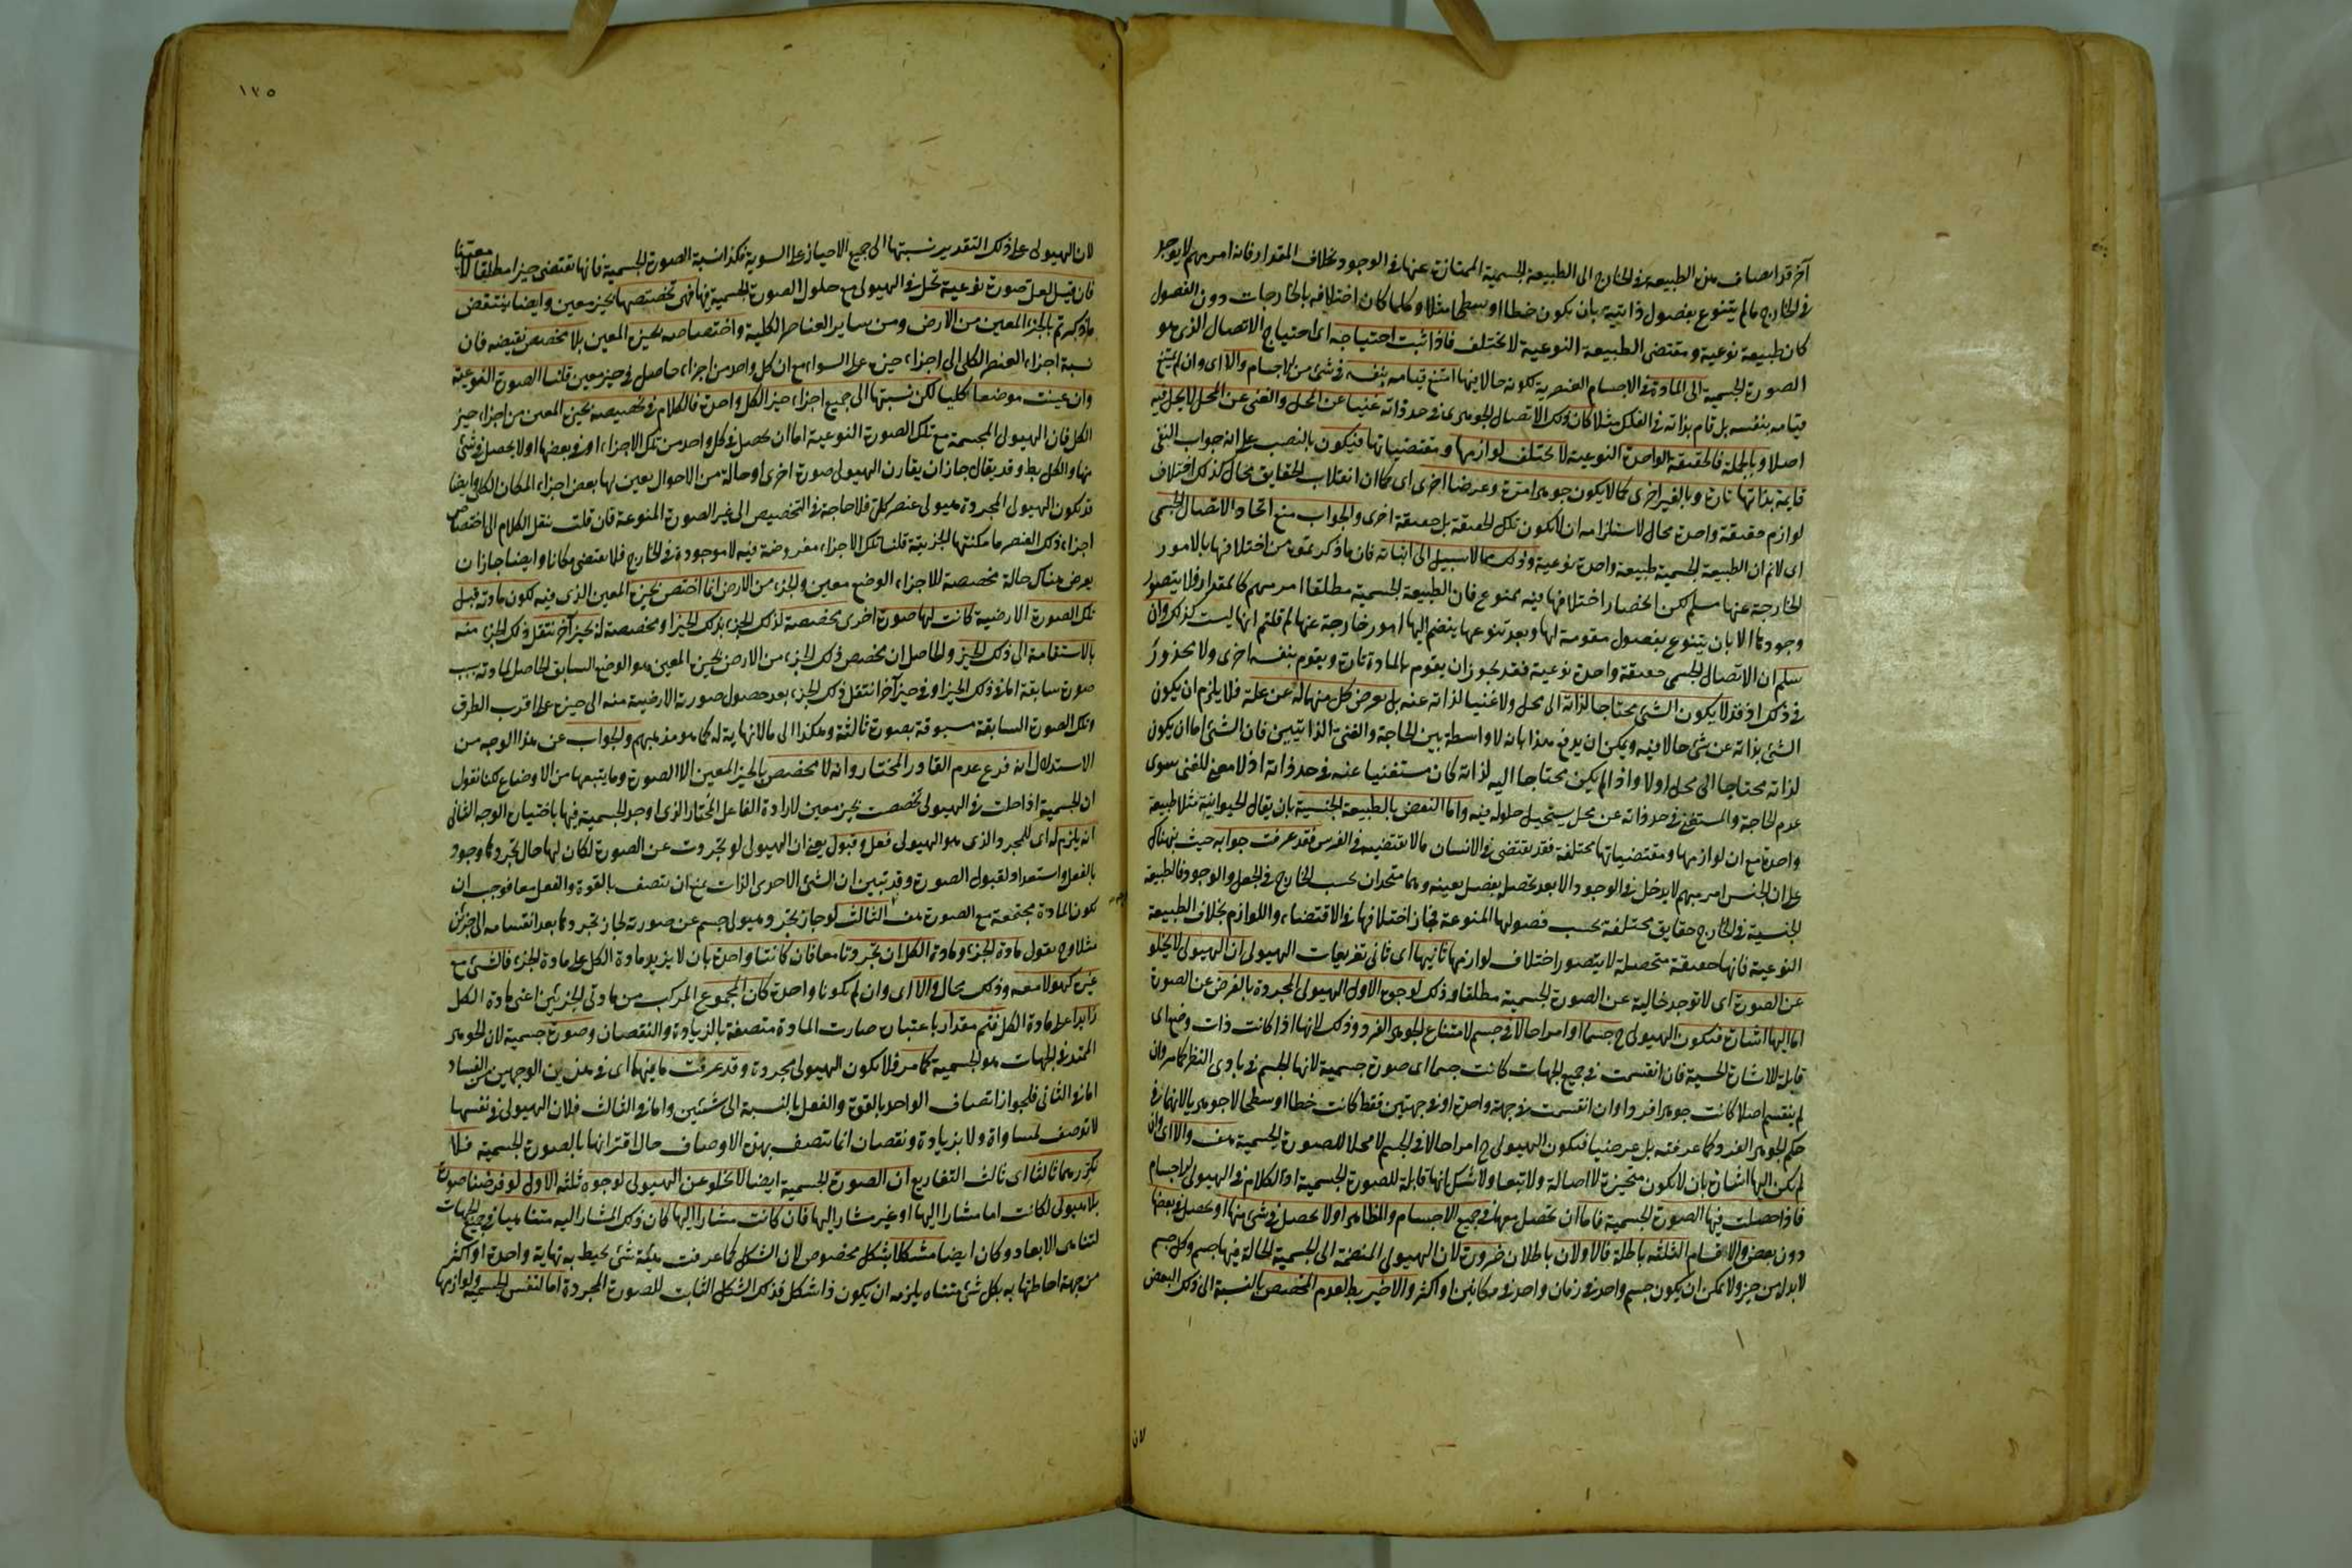 آخر قد انضاف هذه الطبيعة في الخارج الى الطبيعة الجسمية الممتازة عنها في الوجود بخلاف المقدار فانه امر مبهم لا يوجد
في الخارج ما لم يتنوع بفصول ذاتية بان يكون خطا او سطحا مثلا وكلما كان اختلافه بالخارجات دون الفصول
كان طبيعة نوعية ومقتضى الطبيعة النوعية لا يختلف فاذا ثبت احتياجه اى احتياج الاتصال الذى هو
الصورة الجسمية الى المادة في الاجسام العنصرية لكونه حالا فيها امتنع قيامه بنفسه في شئ من الاجسام والا اى وان لم يمتنع
قيامه بنفسه بل قام بذاته في الفلك مثلا كان ذلك الاتصال الجوهرى في حد ذاته غنيا عن المحل والغنى عن المحل لا يحل فيه
اصلا وبالجملة فالحقيقة الواحدة النوعية لا يختلف لوازمها ومقتضياتها فيكون بالنصب على انه جواب النفى
قايمة بذاتها تارة وبالغير اخرى كما لا يكون جوهرا مرة وعرضا اخرى اى كما ان انقلاب الحقايق محال كذلك اختلاف
لوازم حقيقة واحدة محال لاستلزامه ان لا يكون تلك الحقيقة بل حقيقة اخرى والجواب منع اتحاد الاتصال الجسمى
اى لا نم ان الطبيعة الجسمية طبيعة واحدة نوعية وذلك مما لا سبيل الى اثباته فان ما ذكرتموه من اختلافها بالامور
الخارجة عنها مسلم لكن انحصار اختلافها فيه ممنوع فان الطبيعة الجسمية مطلقا امر مبهم كالمقدار فلا يتصور
وجودها الا بان يتنوع بفصول مقومة لها وبعد تنوعها ينضم اليها امور خارجة عنها لم قلتم انها ليست كذلك وان
سلم ان الاتصال الجسمى حقيقة واحدة نوعية فقد يجوز ان يقوم بالمادة تارة ويقوم بنفسه اخرى ولا محذور
في ذلك اذ قد لا يكون الشئ محتاجا لذاته الى محل ولا غنيا لذاته عنه بل يعرض كل منهما له عن علة فلا يلزم ان يكون
الشئ بذاته عن شئ حالا فيه ويمكن ان يدفع هذا بانه لا واسطة بين الحاجة والغنى الذاتيين فان الشئ اما ان يكون
لذاته محتاجا الى محل اولا واذا لم يكن محتاجا اليه لذاته كان مستغنيا عنه في حد ذاته اذ لا معنى للغنى سوى
عدم الحاجة والمستغنى في حد ذاته عن محل يستحيل حلوله فيه واما النقض بالطبيعة الجنسية بان يقال الحيوانية مثلا طبيعة
واحدة مع ان لوازمها ومقتضياتها مختلفة فقد يقتضى في الانسان ما لا يقتضيه في الفرس فقد عرفت جوابه حيث نبهناك
على ان الجنس امر مبهم لا يدخل في الوجود الا بعد تحصله بفصل بعينه وهما متحدان بحسب الخارج في الجعل والوجود فالطبيعة
الجنسية في الخارج حقايق مختلفة بحسب فصولها المنوعة فجاز اختلافها في الاقتضاء واللوازم بخلاف الطبيعة
النوعية فانها حقيقة متحصلة لا يتصور اختلاف لوازمها ثانيها اى ثانى تفريعات الهيولى ان الهيولى لا يخلو
عن الصورة اى لا توجد خالية عن الصورة الجسمية مطلقا وذلك لوجوه الاول الهيولى المجردة بالفرض عن الصورة
اما اليها اشارة فتكون الهيولى ح جسما او امرا حالا في جسم لامتناع الجوهر الفرد وذلك لانها اذا كانت ذات وضع اى
قابلة للاشارة الحسية فان انقسمت في جميع الجهات كانت جسما اى صورة جسمية لانها الجسم في بادى النظر كما مر وان
لم ينقسم اصلا كانت جوهرا فردا وان انقسمت في جهة واحدة او في جهتين فقط كانت خطا او سطحا لا جوهريا لانهما في
حكم الجوهر الفرد كما عرفته بل عرضيا فتكون الهيولى ح امرا حالا في الجسم لا محلا للصورة الجسمية هف والا اى وان
لم يكن اليها اشارة بان لا يكون متحيزة لا اصالة ولا تبعا ولا شك انها قابلة للصورة الجسمية اذ الكلام في الهيولى الاجسام
فاذا حصلت فيها الصورة الجسمية فاما ان تحصل معها في جميع الاجسام والمظاهر او لا يحصل في شئ منها او يحصل في بعضها
دون بعض والاقسام الثلثة باطلة فالاولان باطلان ضرورة لان الهيولى المنضمة الى الجسمية الحالة فيها جسم وكل جسم
لا بد له من حيز ولا يمكن ان يكون جسم واحد في زمان واحد في مكانين او اكثر والاخير بط لعدم المخصص بالنسبة الى ذلك البعض
لان
١٢٥
لان الهيولى على ذلك التقدير نسبتها الى جميع الاحياز على السوية وكذا نسبة الصورة الجسمية فانها تقتضى حيزا مطلقا لا معينا
فان قيل لعل صورة نوعية تحل في الهيولى مع حلول الصورة الجسمية فيها فهى تخصصها بحيز معين وايضا ينتقض
ما ذكرتم بالجزء المعين من الارض ومن ساير العناصر الكلية واختصاصه بحيزه المعين بلا مخصص يقتضيه فان
نسبة اجزاء العنصر الكلى الى اجزاء حيزه على السواء مع ان كل واحد من اجزائه حاصل في حيز معين قلنا الصورة النوعية
وان عينت موضعا كليا لكن نسبتها الى جميع اجزاء حيز الكل واحدة فالكلام في تخصيصه بحيزه المعين من اجزاء حيز
الكل فان الهيولى المجسمة مع تلك الصورة النوعية اما ان يحصل في كل واحد من تلك الاجزاء او في بعضها او لا يحصل في شئ
منها والكل بط وقد يقال جاز ان يقارن الهيولى صورة اخرى او حالة من الاحوال يعين لها بعض اجزاء المكان الكلى وايضا
قد تكون الهيولى المجردة هيولى عنصر كلى فلا حاجة في التخصيص الى غير الصورة المنوعة فان قلت ننقل الكلام الى اختصاص
اجزاء ذلك العنصر بامكنتها الجزئية قلنا تلك الاجزاء مفروضة فيه لا موجودة في الخارج فلا يقتضى مكانا وايضا جاز ان
يعرض هناك حالة مخصصة للاجزاء الوضع معين والجزء من الارض انما اختص بحيزه المعين الذى فيه لكون مادته قبل
تلك الصورة الارضية كانت لها صورة اخرى مخصصة لذلك الجزء بذلك الحيز او مخصصة له بحيز آخر ينتقل ذلك الجزء منه
بالاستقامة الى ذلك الحيز والحاصل ان مخصص ذلك الجزء من الارض بحيزه المعين هو الوضع السابق الحاصل لمادته بسبب
صورة سابقة اما في ذلك الحيز او في حيز آخر انتقل ذلك الجزء بعد حصول صورته الارضية منه الى حيزه على اقرب الطرق
وتلك الصورة السابقة مسبوقة بصورة ثالثة وهكذا الى ما لا نهاية له كما هو مذهبهم والجواب عن هذا الوجه من
الاستدلال انه فرع عدم القادر المختار وانه لا مخصص بالحيز المعين الا الصورة وما يتبعها من الاوضاع لكنا نقول
ان الجسمية اذا حلت في الهيولى تخصصت بحيز معين لارادة الفاعل المختار الذى اوجد الجسمية فيها باختياره الوجه الثانى
انه يلزم له اى للمجرد الذى هو الهيولى فعل وقبول يعنى ان الهيولى لو تجردت عن الصورة لكان لها حال تجردها وجود
بالفعل واستعداد لقبول الصورة وقد تبين ان الشئ الاحدى الذات يمتنع ان يتصف بالقوة والفعل معا فوجب ان
تكون المادة مجتمعة مع الصورة هف الثالث لو جاز تجرد هيولى جسم عن صورته لجاز تجردها بعد انقسامه الى جزئين
مثلا وح نقول مادة الجزء ومادة الكل ان تجردتا معا فان كانتا واحدة بان لا يزيد مادة الكل على مادة الجزء فالشئ مع
غيره كهو لا معه وذلك محال والا اى وان لم يكونا واحدة كان المجموع المركب من مادتى الجزئين اعنى مادة الكل
زايدا على مادة الكل فثم مقدار باعتباره صارت المادة متصفة بالزيادة والنقصان وصورة جسمية لان الجوهر
الممتد في الجهات هو الجسمية كما مر فلا يكون الهيولى مجردة وقد عرفت ما فيهما اى في هذين الوجهين من الفساد
اما في الثانى فلجواز اتصاف الواحد بالقوة والفعل بالنسبة الى شئين واما في الثالث فلان الهيولى في نفسها
لا توصف بمساواة ولا بزيادة ونقصان انما تتصف بهذه الاوصاف حال اقترانها بالصورة الجسمية فلا
نكررهما ثالثا اى ثالث التفاريع ان الصورة الجسمية ايضا لا تخلو عن الهيولى لوجوه ثلثة الاول لو فرضنا صورة
بلا هيولى لكانت اما مشارا اليها او غير مشار اليها فان كانت مشارا اليها كان ذلك المشار اليه متناهيا في جميع الجهات
لتناهى الابعاد وكان ايضا مشكلا بشكل مخصوص لان الشكل كما عرفت هيئة شئ يحيط به نهاية واحدة او اكثر
من جهة احاطتها به بكل شئ متناه يلزمه ان يكون ذا شكل فذلك الشكل الثابت للصورة المجردة اما لنفس الجسمية ولوازمها